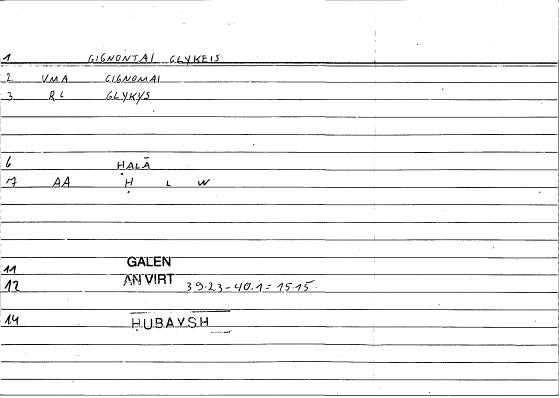 1 GIGNONTAI GLYKEIS
2 VMA GIGNOMAI
3 RL GLYKYS
6 ḤALĀ
7 AA Ḥ L W
11 GALEN
12 AN VIRT 39.23-40.1 = 15.15
14 ḤUBAYSH